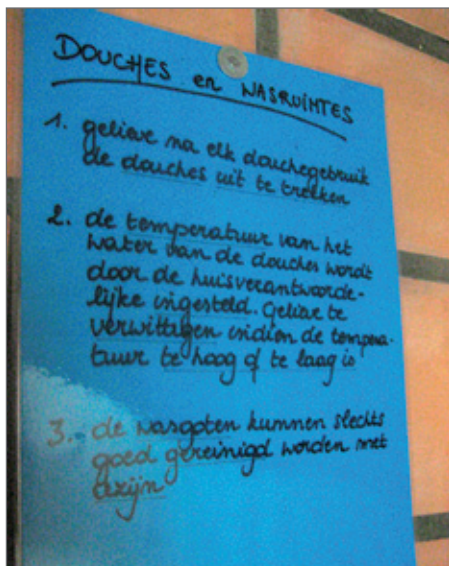 DOUCHES en WASRUIMTES
1. gelieve na elk douchegebruik
de douches uit te trekken
2. de temperatuur van het
water van de douches wordt
door de huisverantwoorde-
lijke ingesteld. Gelieve te
verwittigen indien de tempera-
tuur te hoog of te laag is
3. de wasgoten kunnen slechts
goed gereinigd worden met
azijn